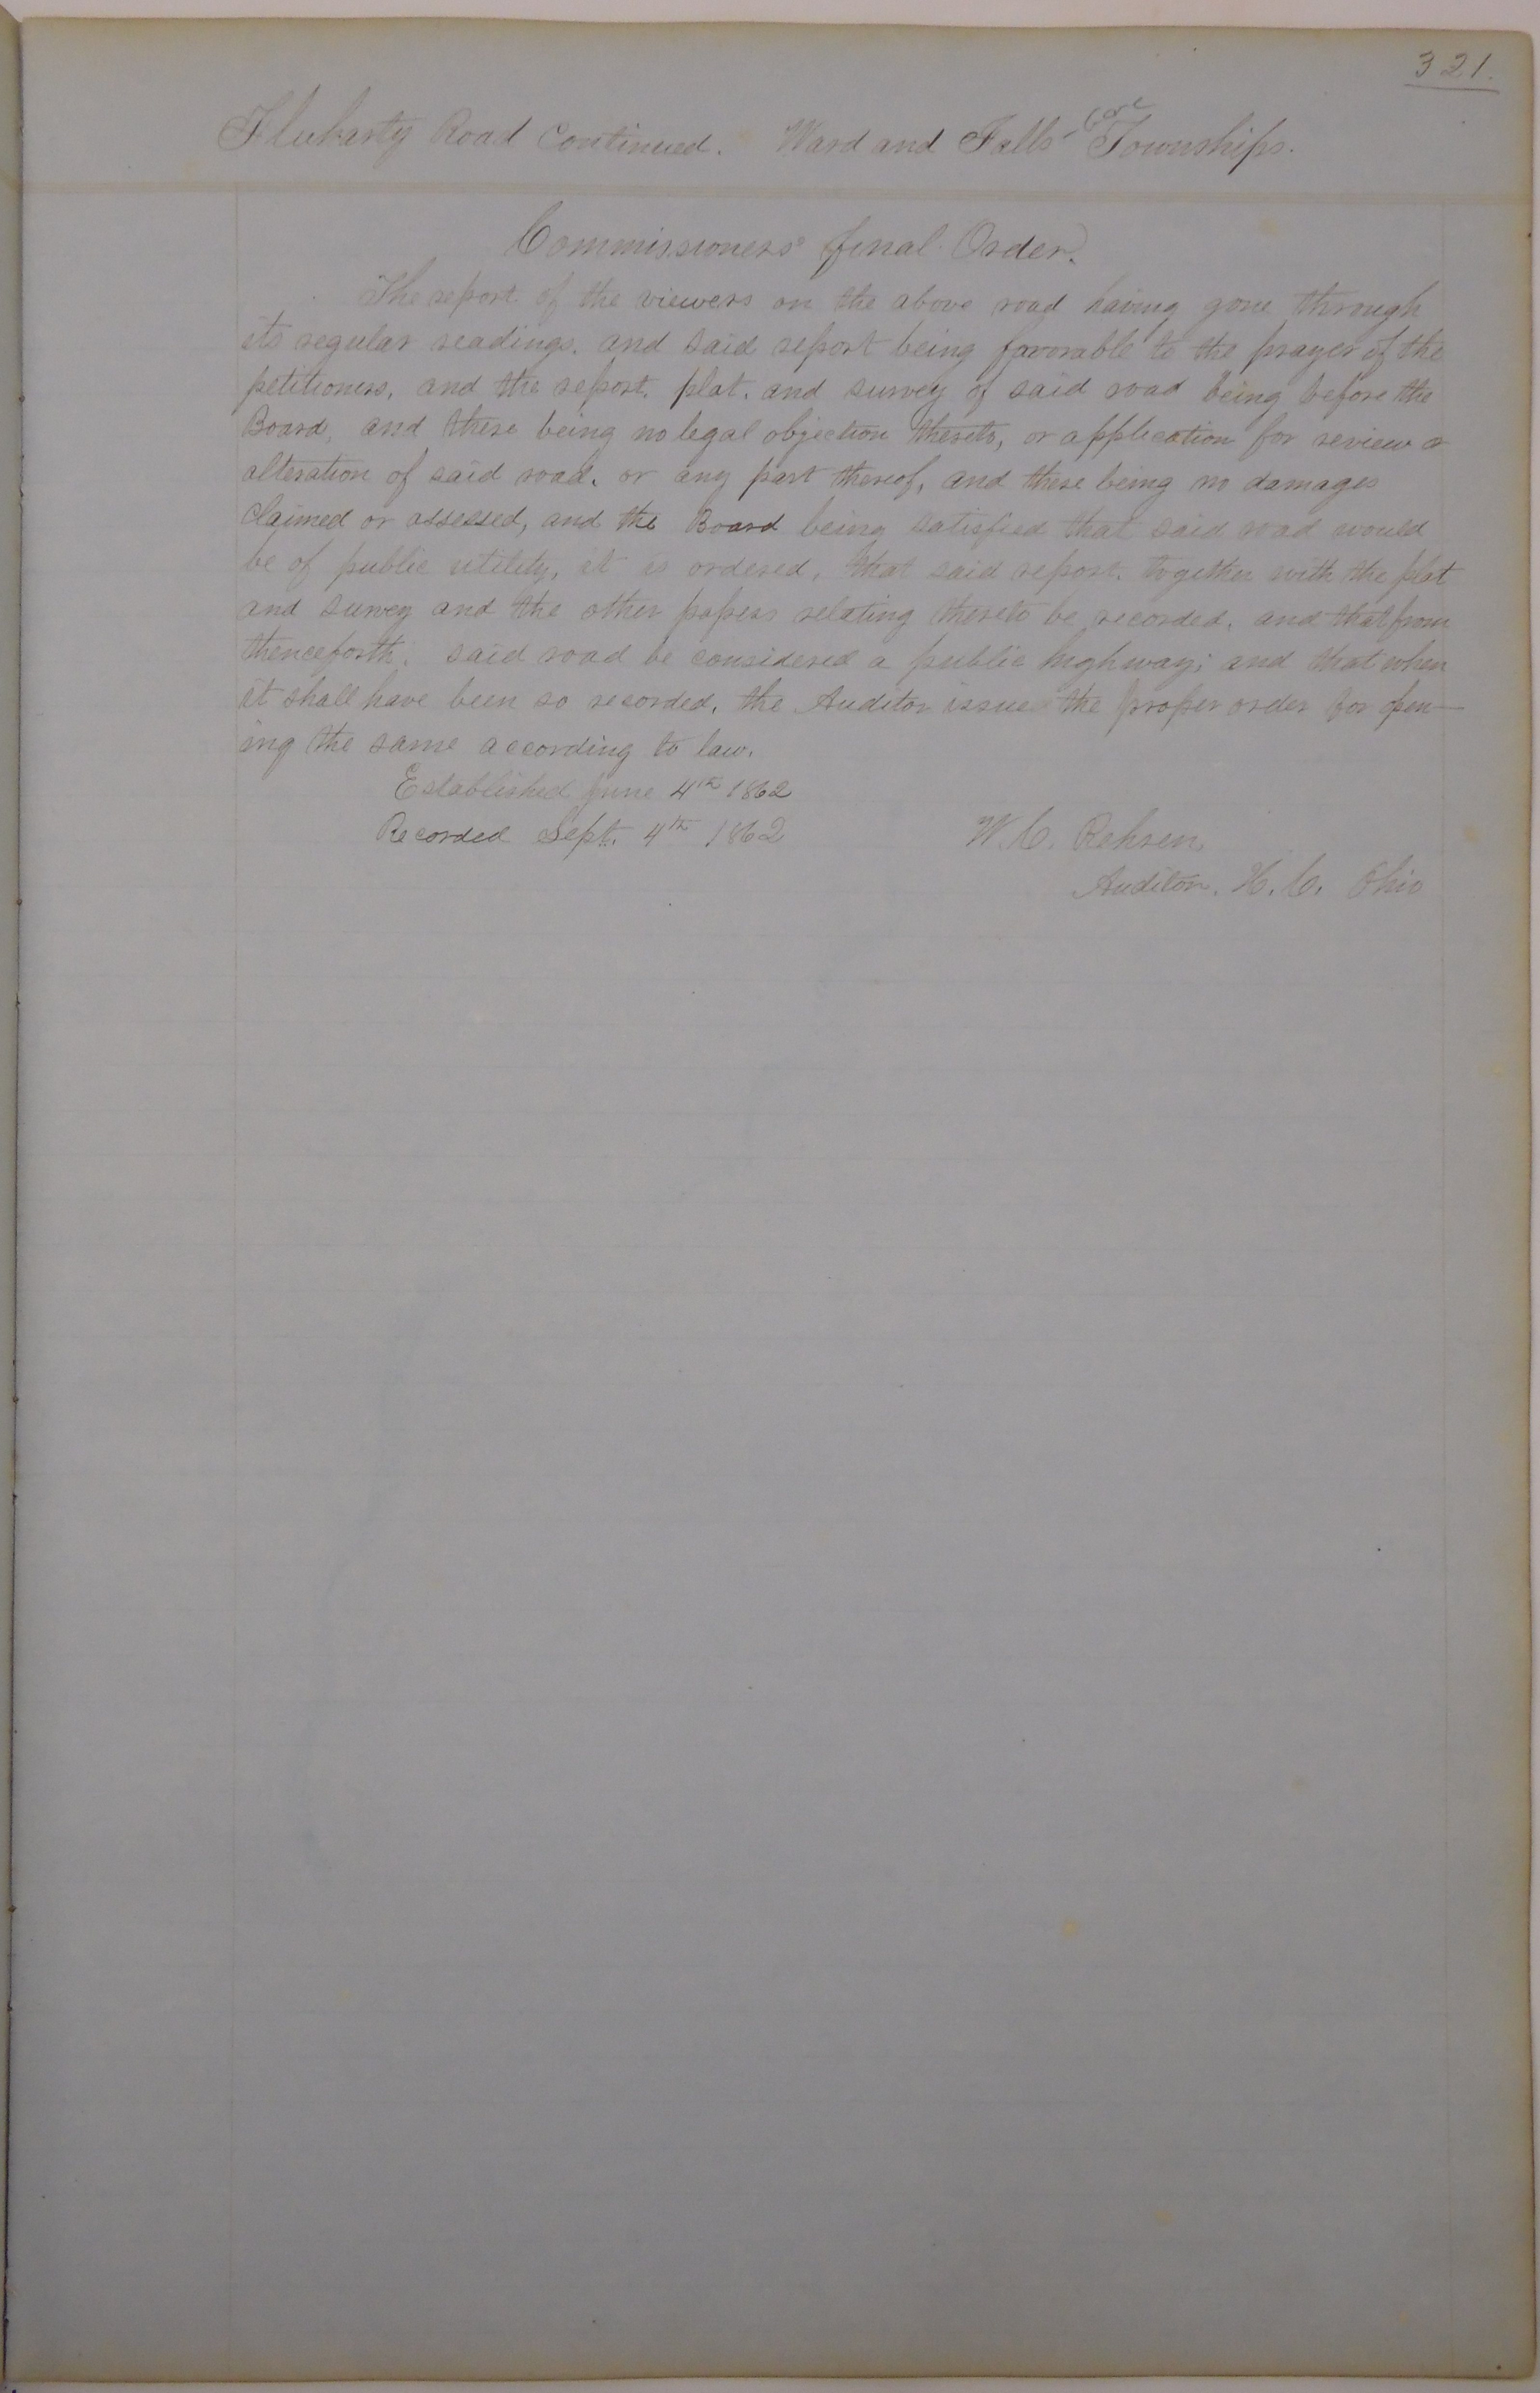 321.
Flukarty Road Continued. Ward and Falls - Gore Townships.
Commissioners' final Order.
The report of the viewers on the above road having gone through
its regular readings. and said report being favorable to the prayer of the
petitioners, and the report. plat. and survey of said road being before the
Board, and there being no legal objection thereto, or application for review or
alteration of said road. or any part thereof, and there being no damages
claimed or assessed, and the Board being satisfied that said road would
be of public utility, it is ordered, that said report. together with the plat
and survey and the other papers relating thereto be recorded. and that from
thenceforth. said road be considered a public highway; and that when
it shall have been so recorded, the Auditor issue the proper order for open-
ing the same according to law.
Established June 4th 1862
Recorded Sept. 4th 1862
W. C. Rehren,
Auditor. H. C. Ohio